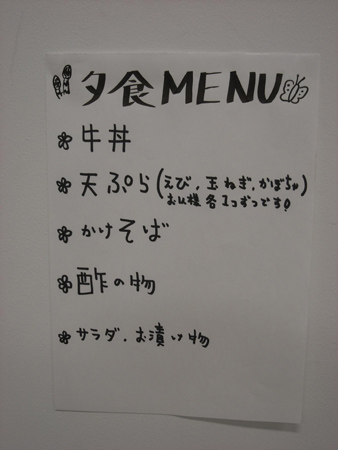 夕食MENU
牛丼
天ぷら(えび,玉ねぎ,かぼちゃ)
お1人様各1つずつです!
かけそば
酢の物
サラダ.お漬け物